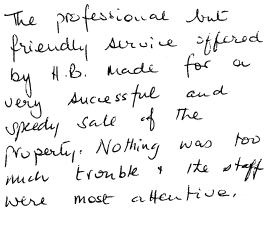 The professional but
friendly service offered
by H.B. made for a
very successful and
speedy sale of the
property. Nothing was too
much trouble & the staff
were most attentive.